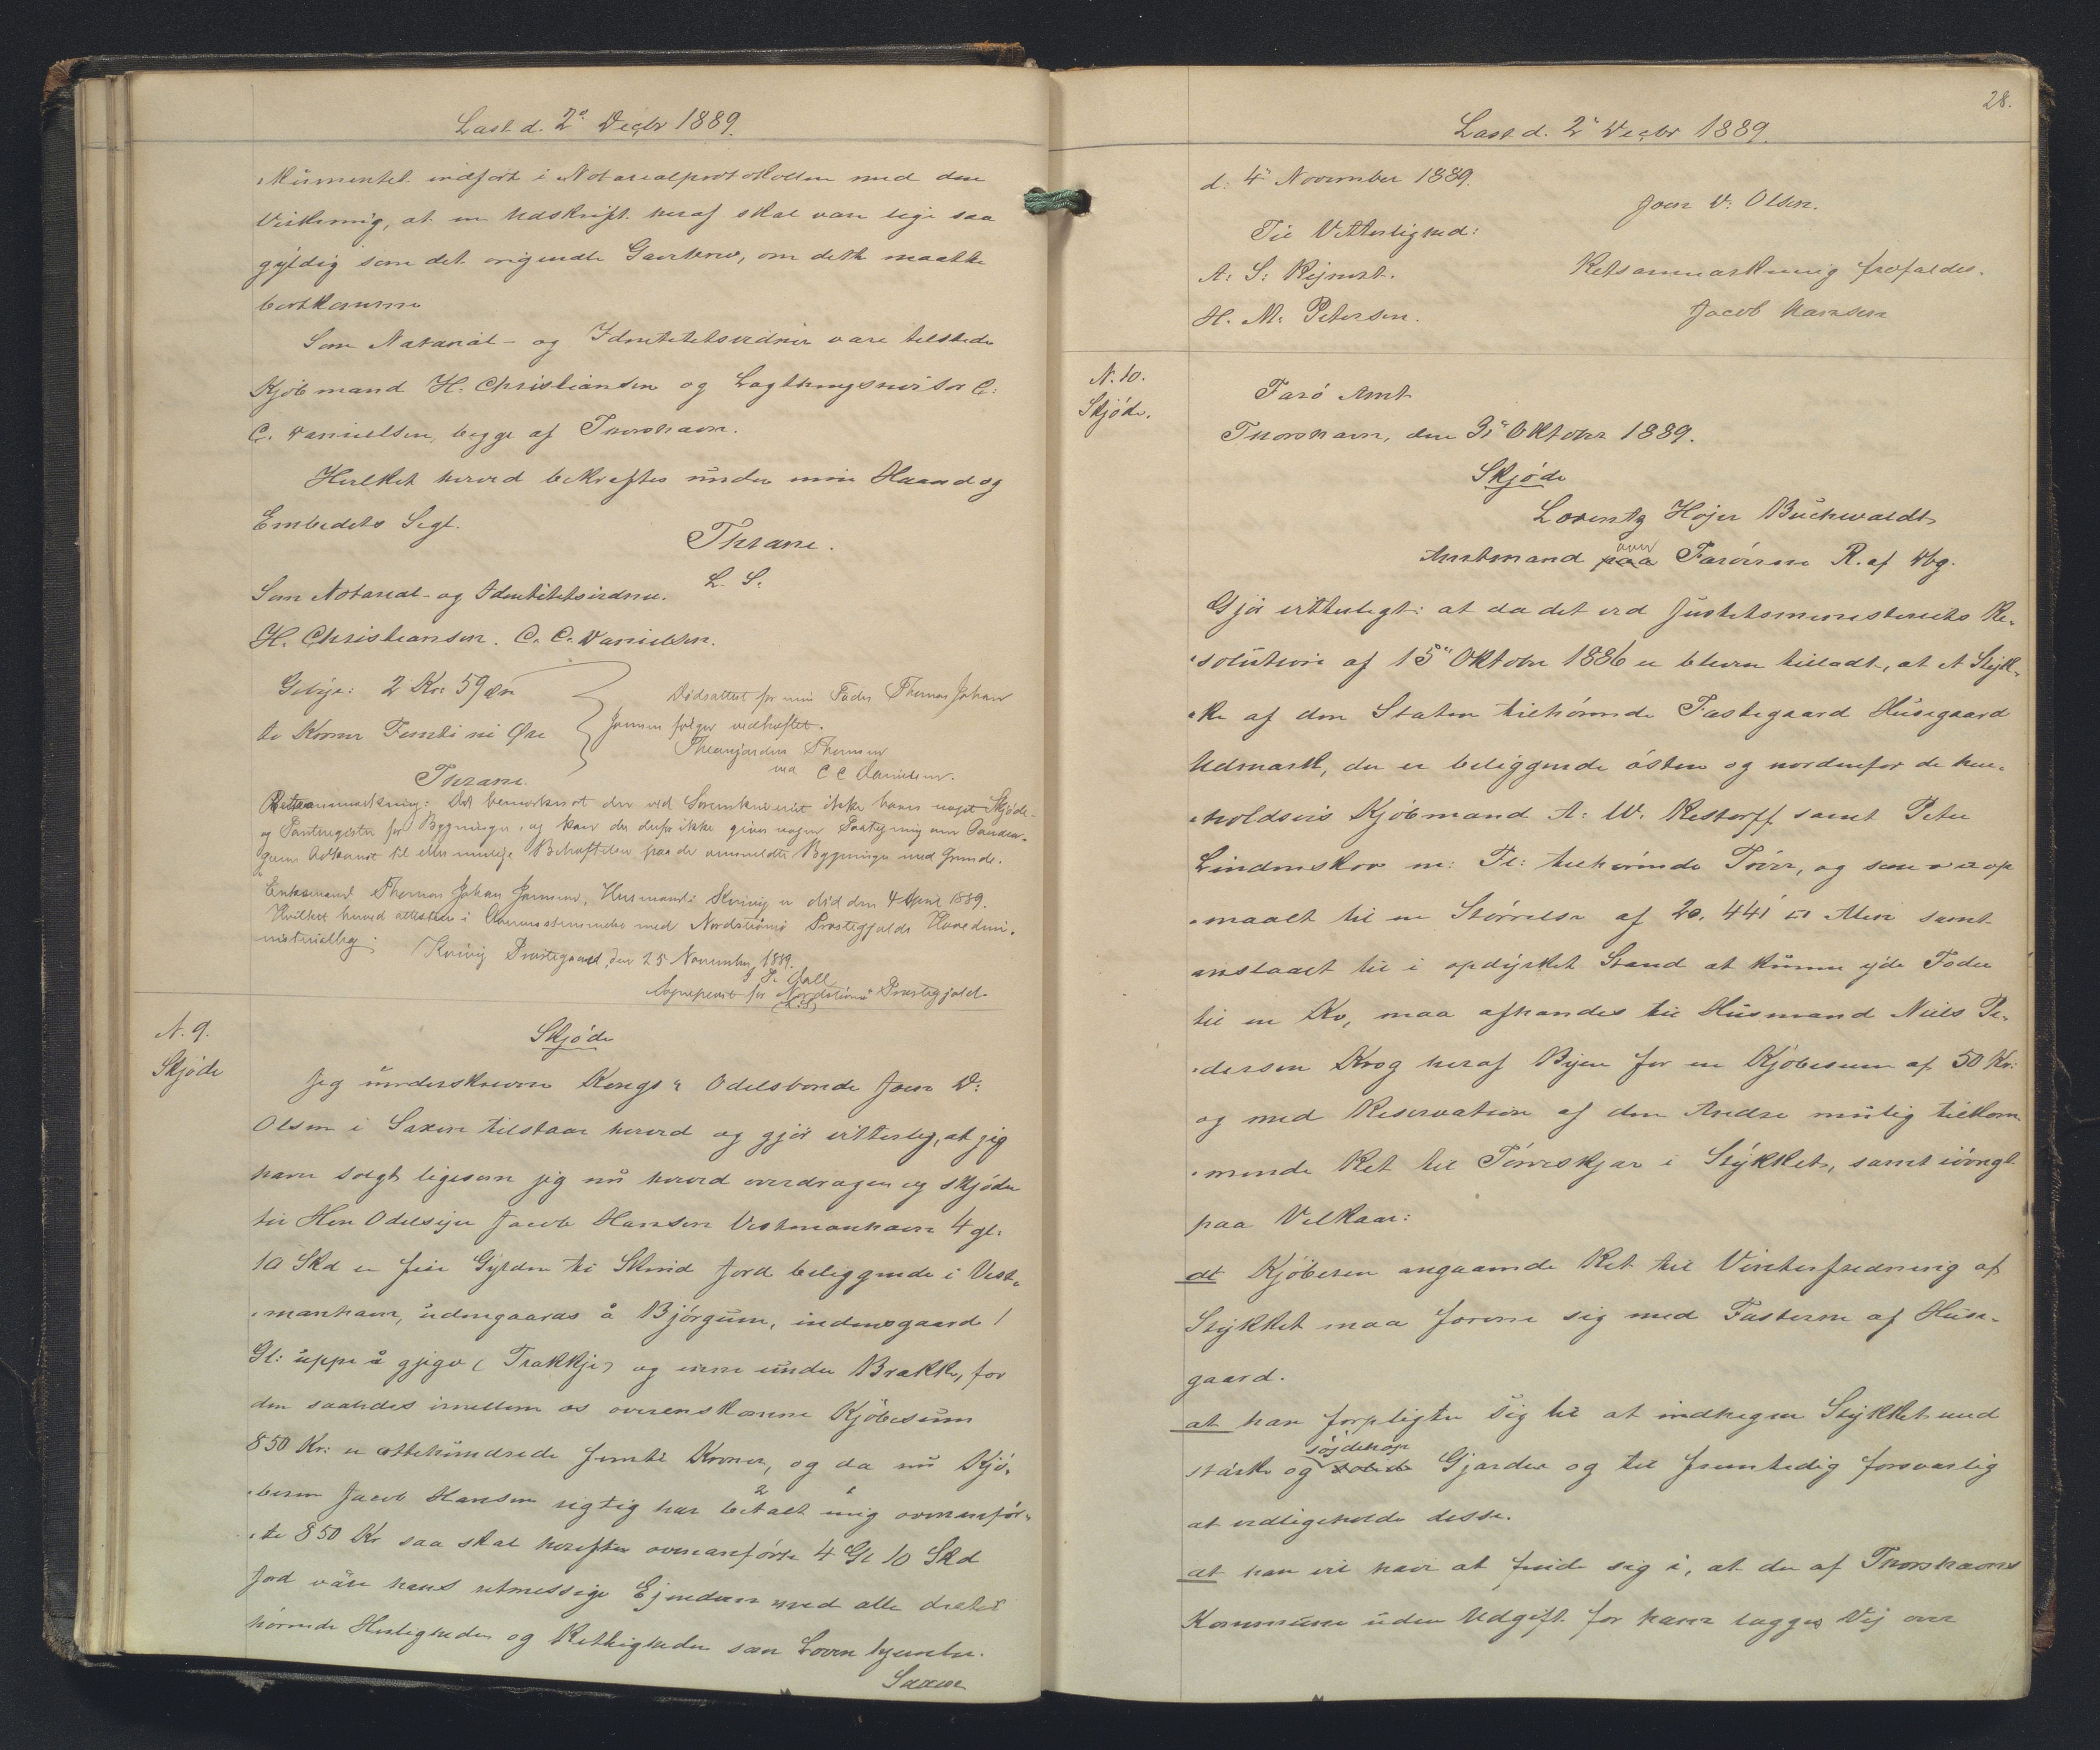 Læst d. 2den Decbr 1889.
-kumentet indført i Notarialprotokollen med den
Virkning, at en Udskrift heraf skal være lige saa
gyldig som det originale Gavebrev, om dette maatte
bortkomme
Som Notarial- og Identitetsvidner vare tilstede
Kjøbmand H. Christiansen og Lagthingsrevisor C:
C. Danielsen, begge af Thorshavn.
Hvilket herved bekræftes under min Haand og
Embedets Segl.
Thrane.
L. S.
Som Notarial- og Identitetsvidne.
H. Christiansen. C. C. Danielsen.
Gebyr: 2 Kr. 59 Øre
to Kroner Femti ni Øre
Thrane.
Dødsattest for min Fader Thomas Johan
Jensen følger vedhæftet.
Thomsen
C C Danielsen.
Retsanmærkning: Det bemærkes at der ved Sorenskriveriet ikke haves noget Skjøde-
og Panteregister for Bygninger, og kan der derfor ikke gives nogen Paategning om
Adkomst til eller mulige Behæftelser paa de ommeldte Bygninger med Grunde.
Enkemand Thomas Johan Jensen, Huusmand i Kvivig er død den 4 April 1889.
Hvilket herved attesteres i Overensstemmelse med Nordstrømø Præstegjelds Hovedmi-
nisterialbog.
Kvivig Præstegaard, den 25 November 1889.
Sognepræst for Nordstrømø Præstegjeld.
(L.S)
N. 9.
Skjøde
Skjøde
Jeg underskrevne Kongs & Odelsbonde Joen D:
Olsen i Saxen tilstaar herved og gjør vitterlig, at jeg
haver solgt ligesom jeg nu herved overdrager og skjøder
til Hr. Odelsejer Jacob Hansen Vestmanhavn 4 gl:
10 Skd er fire Gylden ti Skind Jord beliggende i Vest-
-manhavn, udengaards å Bjørgum, indengaard 1
Gl: uppi å gjigv (Trakkje) og inni undir Brekke, for
den saaledes imellem os overenskomne Kjøbesum
850 Kr: er ottehundrede femti Kroner, og da nu Kjø-
-beren Jacob Hansen rigtig har betalt mig ovenanfør-
-te 850 Kr saa skal herefter ovenanførte 4 Gl 10 Skd
Jord være hans retmessige Ejendom med alle dertil
hørende Herligheder og Rettigheder som Loven hjemler.
Saxen
28.
Læst d. 2den Decbr 1889.
d: 4de November 1889.
Joen D: Olsen.
Til Vitterlighed:
A: S: Rejnert.
H. M. Petersen.
Retsanmærkning frafaldes.
Jacob Hansen
N. 10.
Skjøde.
Færø Amt
Thorshavn, den 31te Oktober 1889.
Skjøde
Lorentz Højer Buchwaldt
over
Amtmand paa Færøerne R. af Dbg.
Gjør vitterligt: at da det ved Justitsministeriets Re-
-solution af 15de Oktober 1886 er bleven tilladt, at et Styk-
-ke af den Staten tilhørende Fæstegaard Husegaard
Udmark, der er beliggende østen og nordenfor de hen-
-holdsvis Kjøbmand A: W. Restorff samt Peter
Lindenskov m: Fl: tilhørende Trøer, og som er op
-maalt til en Størrelse af 20. 441 □ Alen samt
anslaaet til i opdyrket Stand at kunne yde Foder
til en Ko, maa afhændes til Husmand Niels Pe-
-dersen Krog heraf Byen for en Kjøbesum af 50 Kr:
og med Reservation af den Andre mulig tilkom
-mende Ret til Tørveskjær i Stykket, samt iøvrigt
paa Vilkaar:
at Kjøberen angaaende Ret til Vinterfredning af
Stykket maa forene sig med Fæsterne af Huse-
gaard.
at han forpligter sig til at indhegne Stykket med
stærke og solide Gjærder og til fremtidig forsvarlig
at vedligeholde disse.
at han vil have at finde sig i, at der af Thorshavns
Kommune uden Udgift for ham lægges Vej over